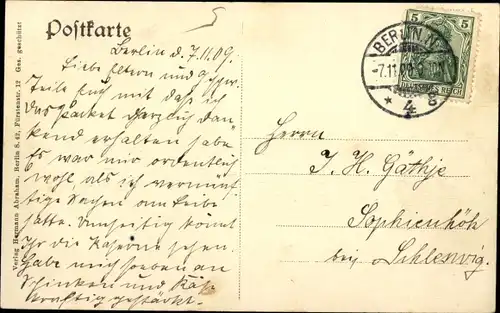 Postkarte
Berlin d. 7.11.09.
Liebe Eltern und Geschw.
Teile Euch mit daß ich
das Packet herzlich dan-
kend erhalten habe
Es war mir ordentlich
wohl, als ich vernünf-
tige Sachen am Leibe
hatte. Umseitig könnt
Ihr die Kaserne sehen.
Habe mich soeben an
Schinken und Käse
kräftig gestärkt.
Herrn
J. H. Gäthje
Sophienhöh
bei Schleswig.
BERLIN N.
-7.11.09
* 4 g
5 5
DEUTSCHES REICH
Verlag Hermann Abraham, Berlin S. 42, Fürstenstr. 12 Ges. geschützt